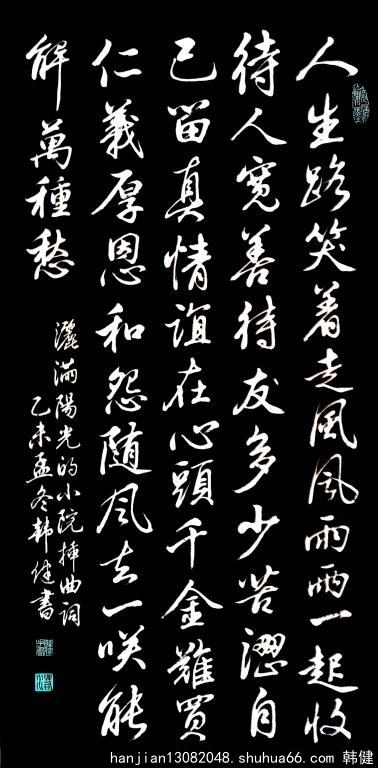 人生路笑着走風風雨雨一起收
待人寬善待友多少苦澀自
己留真情誼在心頭千金難買
仁義厚恩和怨随风去一咲能
解萬種愁
灑滿陽光的小院插曲詞
乙未孟冬韩健書
hanjian13082048.shuhua66.com 韩健